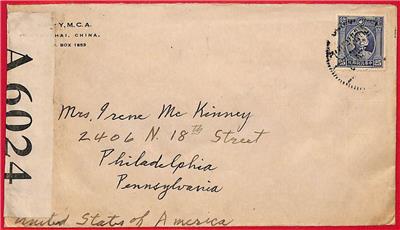 Y, M. C. A.
HAI, CHINA.
BOX 1853
25 25
A 6024
Mrs. Irene Mc Kinney
2406 N. 18th Street
Philadelphia
Pennsylvania
United States of America